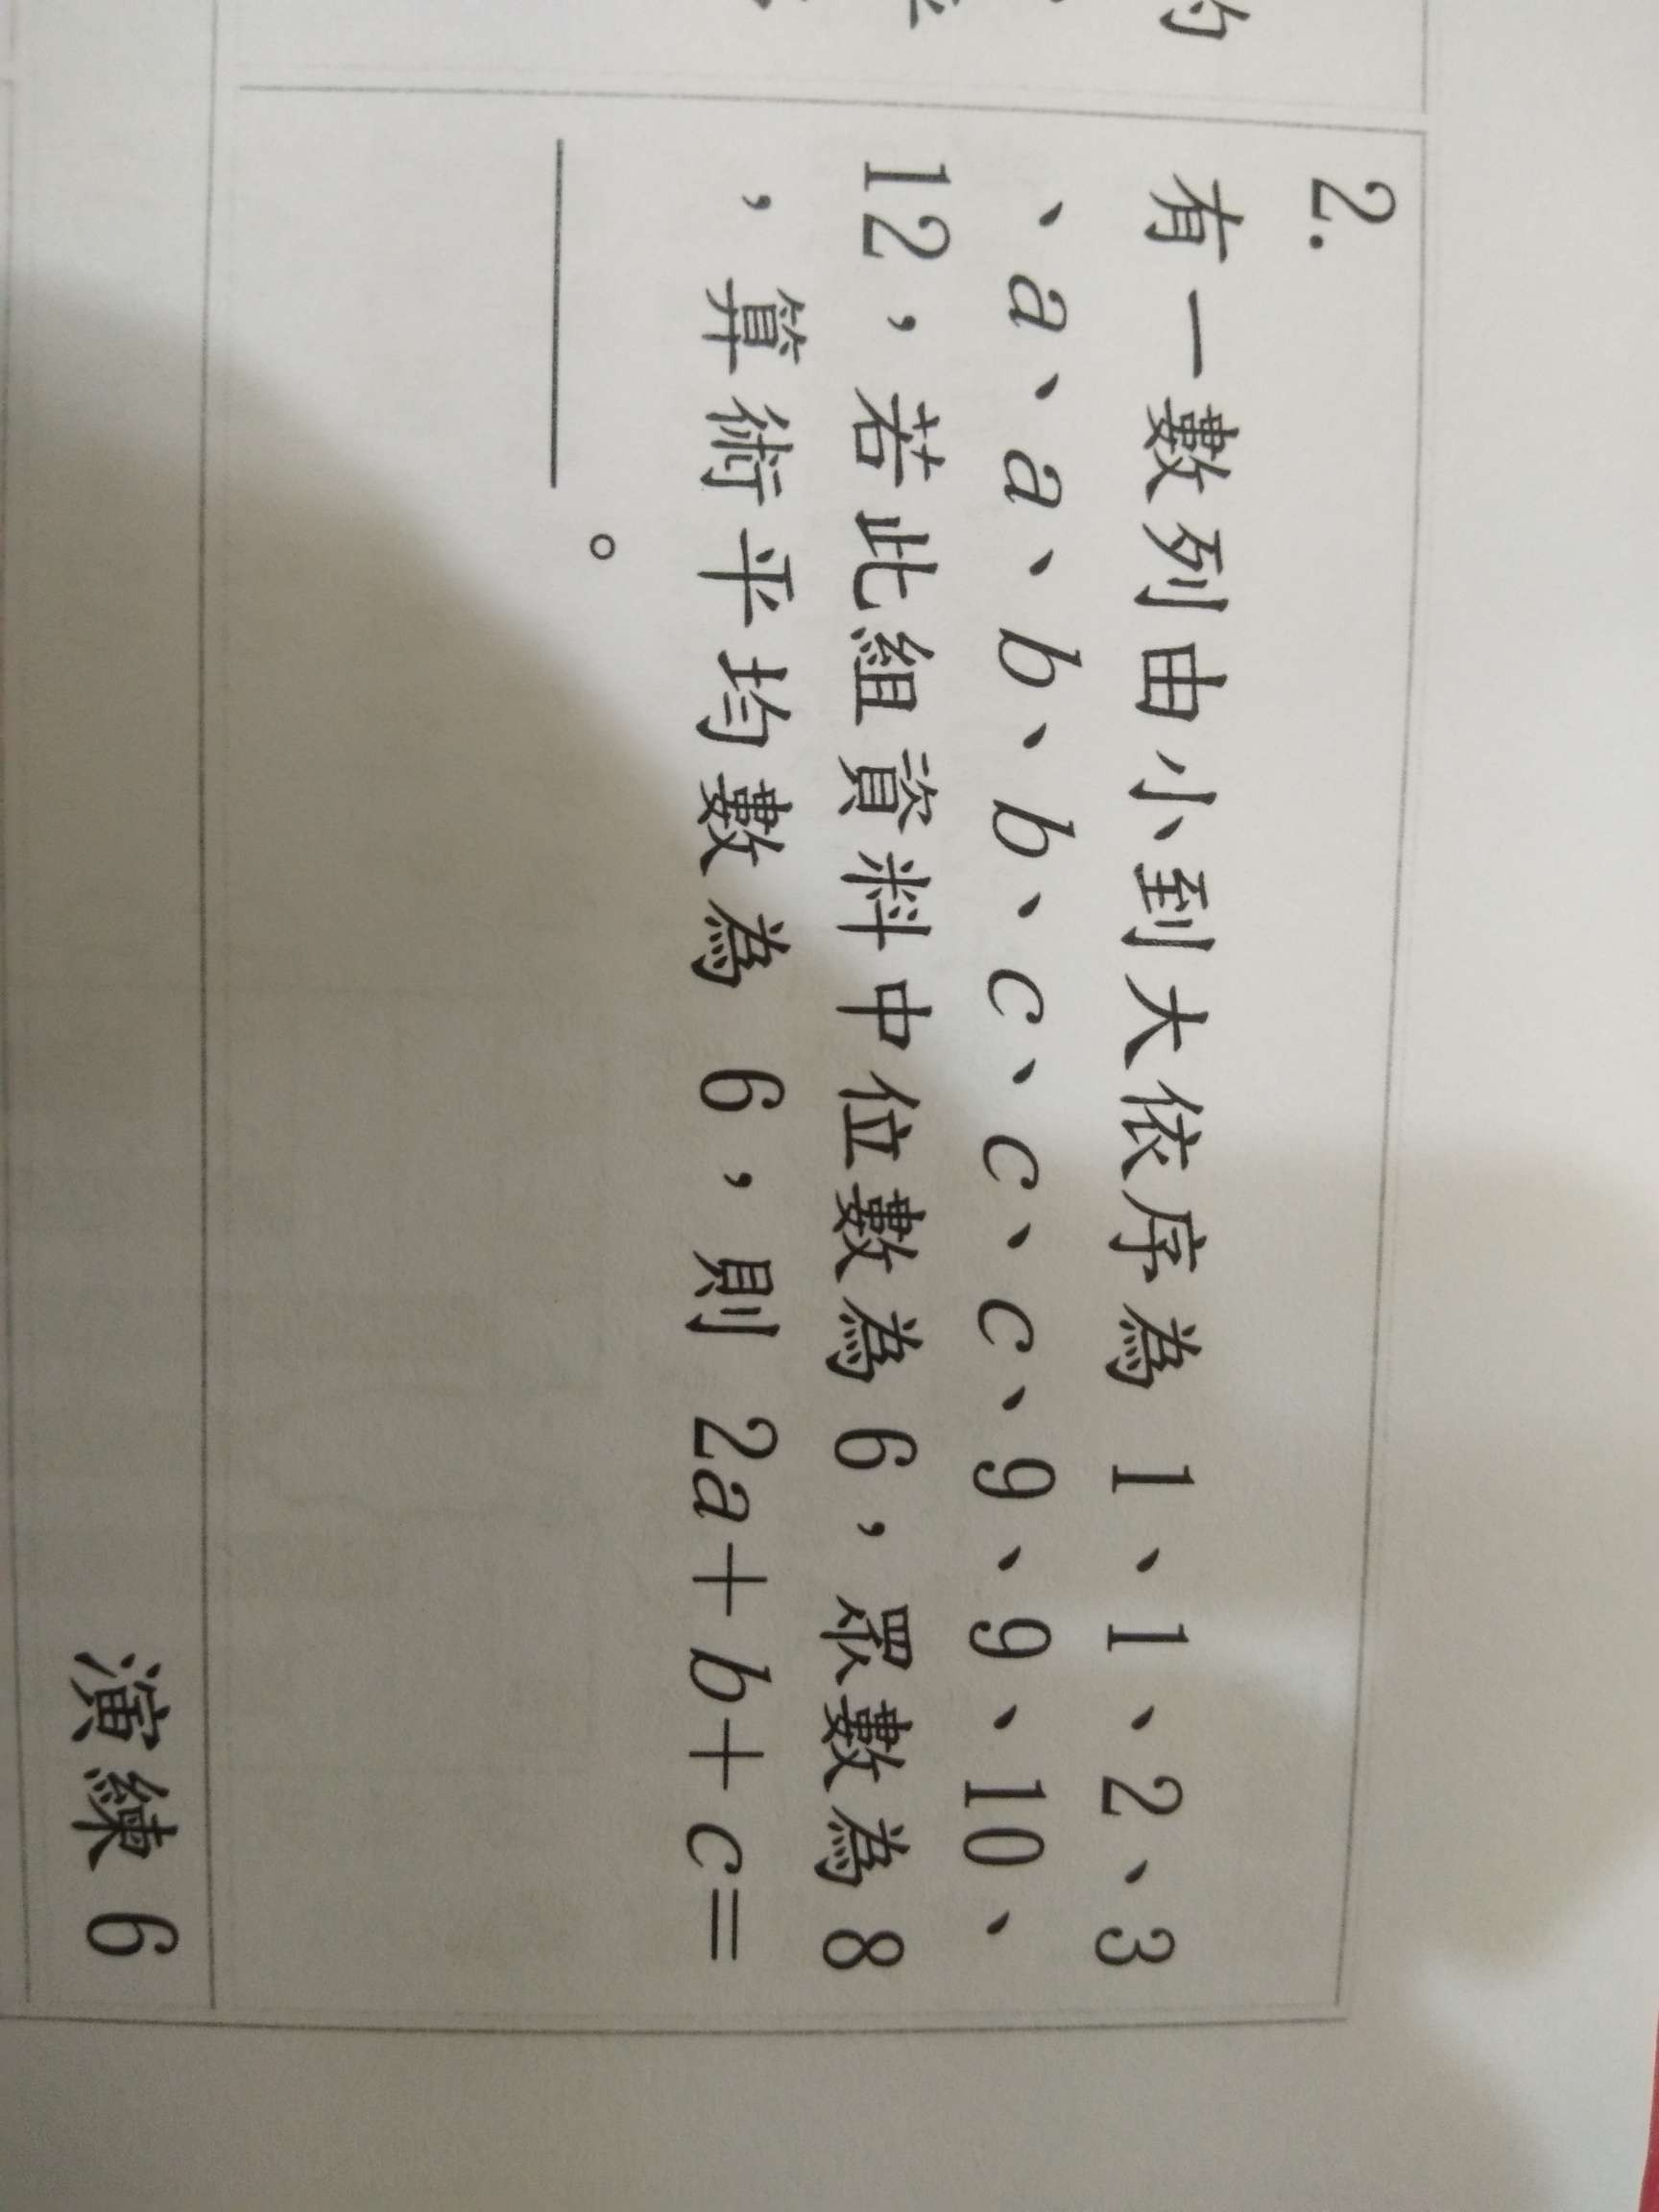 的
2.
有一數列由小到大依序為 1、1、2、3
、a、a、b、b、c、c、c、9、9、10、
12，若此組資料中位數為 6，眾數為 8
，算術平均數為 6，則 2a+b+c=
＿＿＿＿。
演練 6